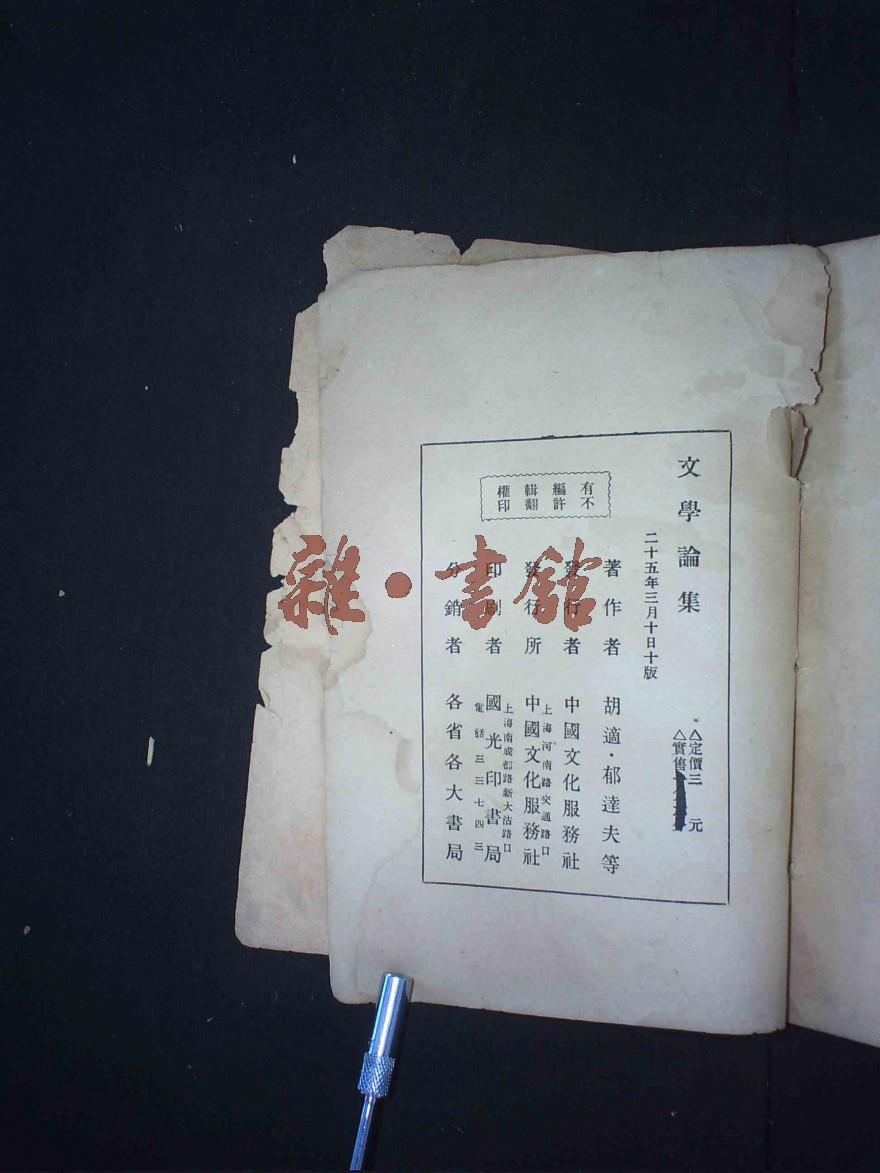 文學論集
二十五年三月十日十版
△定價三元
△實售
著作者 胡適·郁達夫等
發行者 中國文化服務社
上海河南路交通路口
發行所 中國文化服務社
上海南成都路新大沽路口
印刷者 國光印書局
電話三三七四三
分銷者 各省各大書局
有不
編許
輯翻
權印
雜·書館